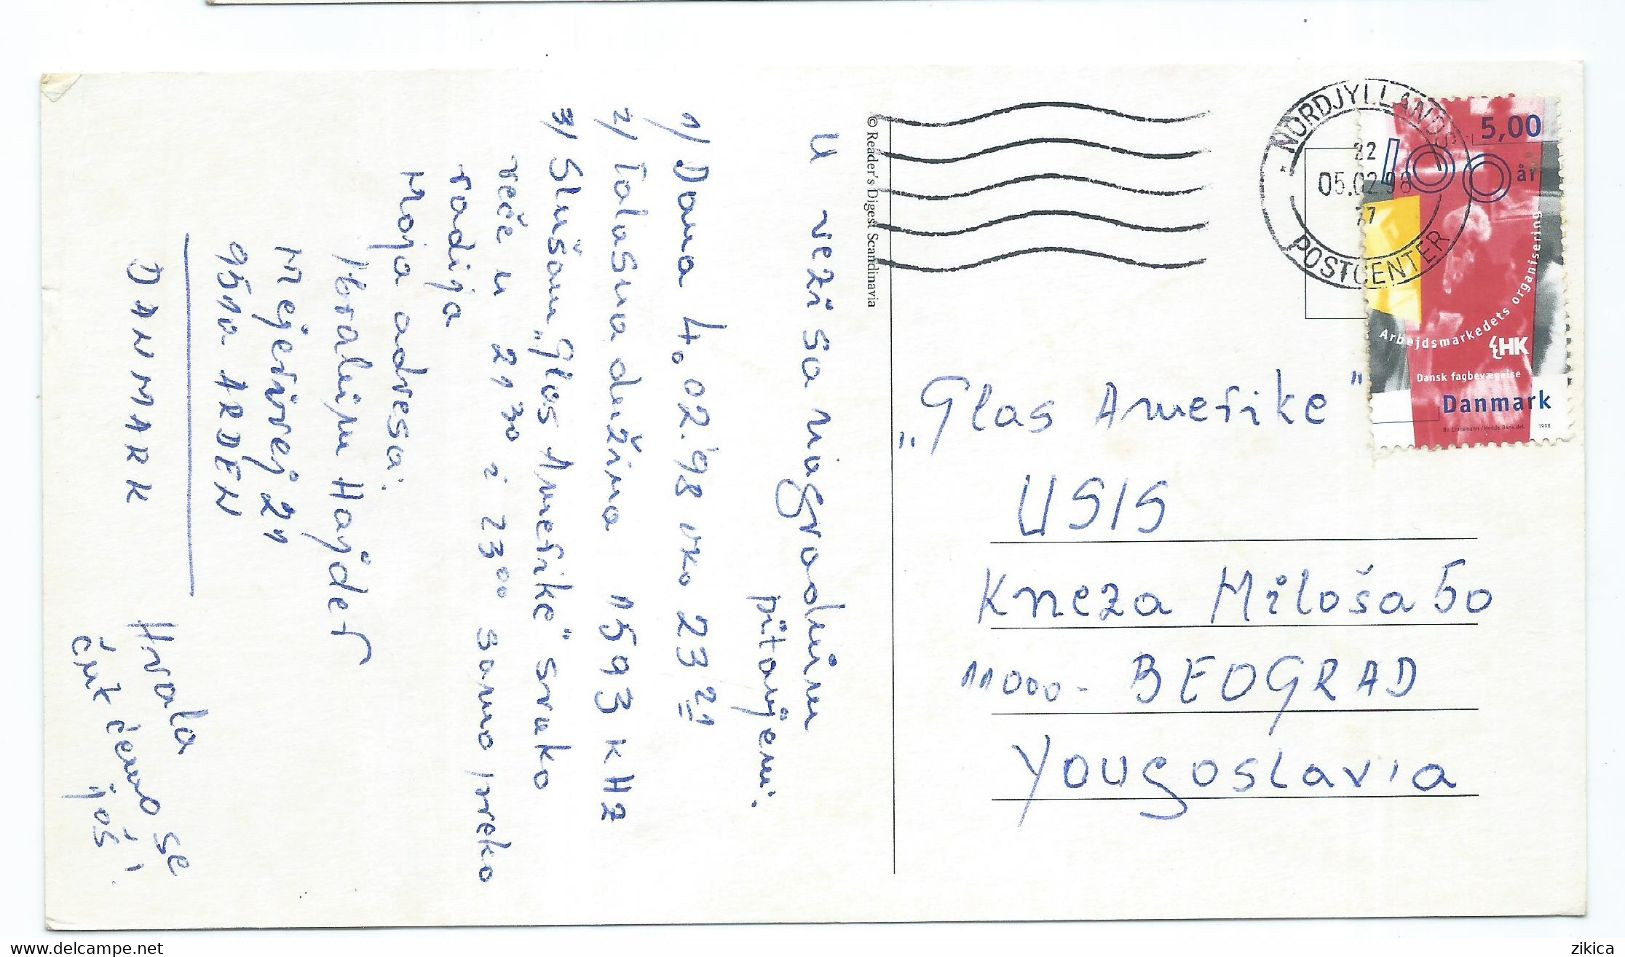 U vezi sa nagradnim
pitanjem.
1) Dana 4.02.'98 oko 23 21
2) Talasna dužina 1593 KHz
3/ Slušam „Glas Amerike" svako
veče u 21 30 i 23 00 samo preko
radija
Moja adresa:
Ibrahim Hajder
Mejerivej 21
9510 ARDEN
DANMARK
Hvala
čut ćemo se
još
© Reader's Digest Scandinavia
NORDJYLLANDS
22
05.02.98
POSTCENTER
5,00
100
år
Arbejdsmarkedets organisering
HK
Dansk fagbevægelse
Danmark
1998
„Glas Amerike"
USIS
Kneza Miloša 50
11000- BEOGRAD
Yougoslavia
zikica